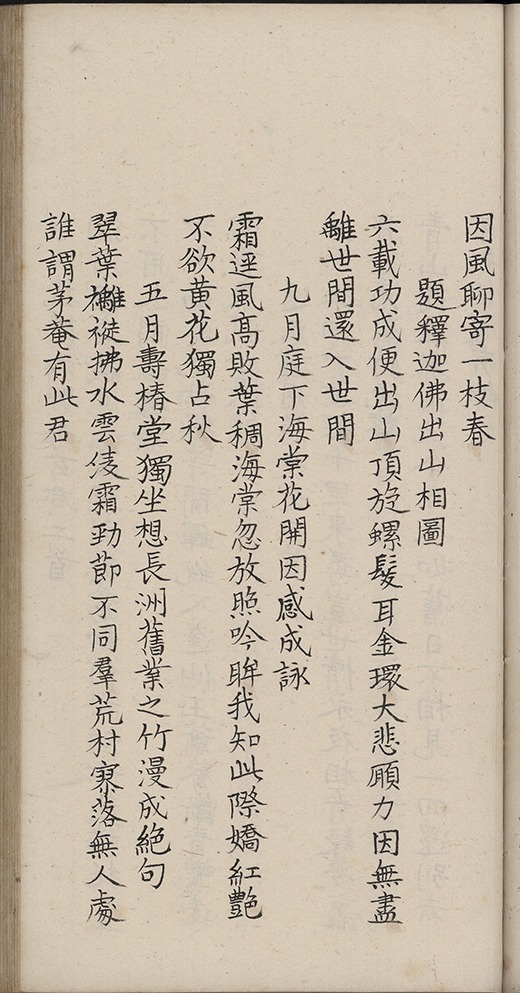 因風聊寄一枝春
題釋迦佛出山相圖
六載功成便出山頂旋螺髮耳金環大悲願力因無盡
離世間還入世間
九月庭下海棠花開因感成詠
霜逕風高敗葉稠海棠忽放照吟眸我知此際嬌紅艷
不欲黃花獨占秋
五月壽椿堂獨坐想長洲舊業之竹漫成絕句
翠葉襳褷拂水雲淩霜勁節不同羣荒村寥落無人處
誰謂茅菴有此君